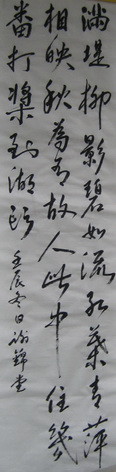 满堤柳影碧如流红叶青萍
相映秋为有故人此中住几
番打桨到湖头 壬辰冬日谢锦堂